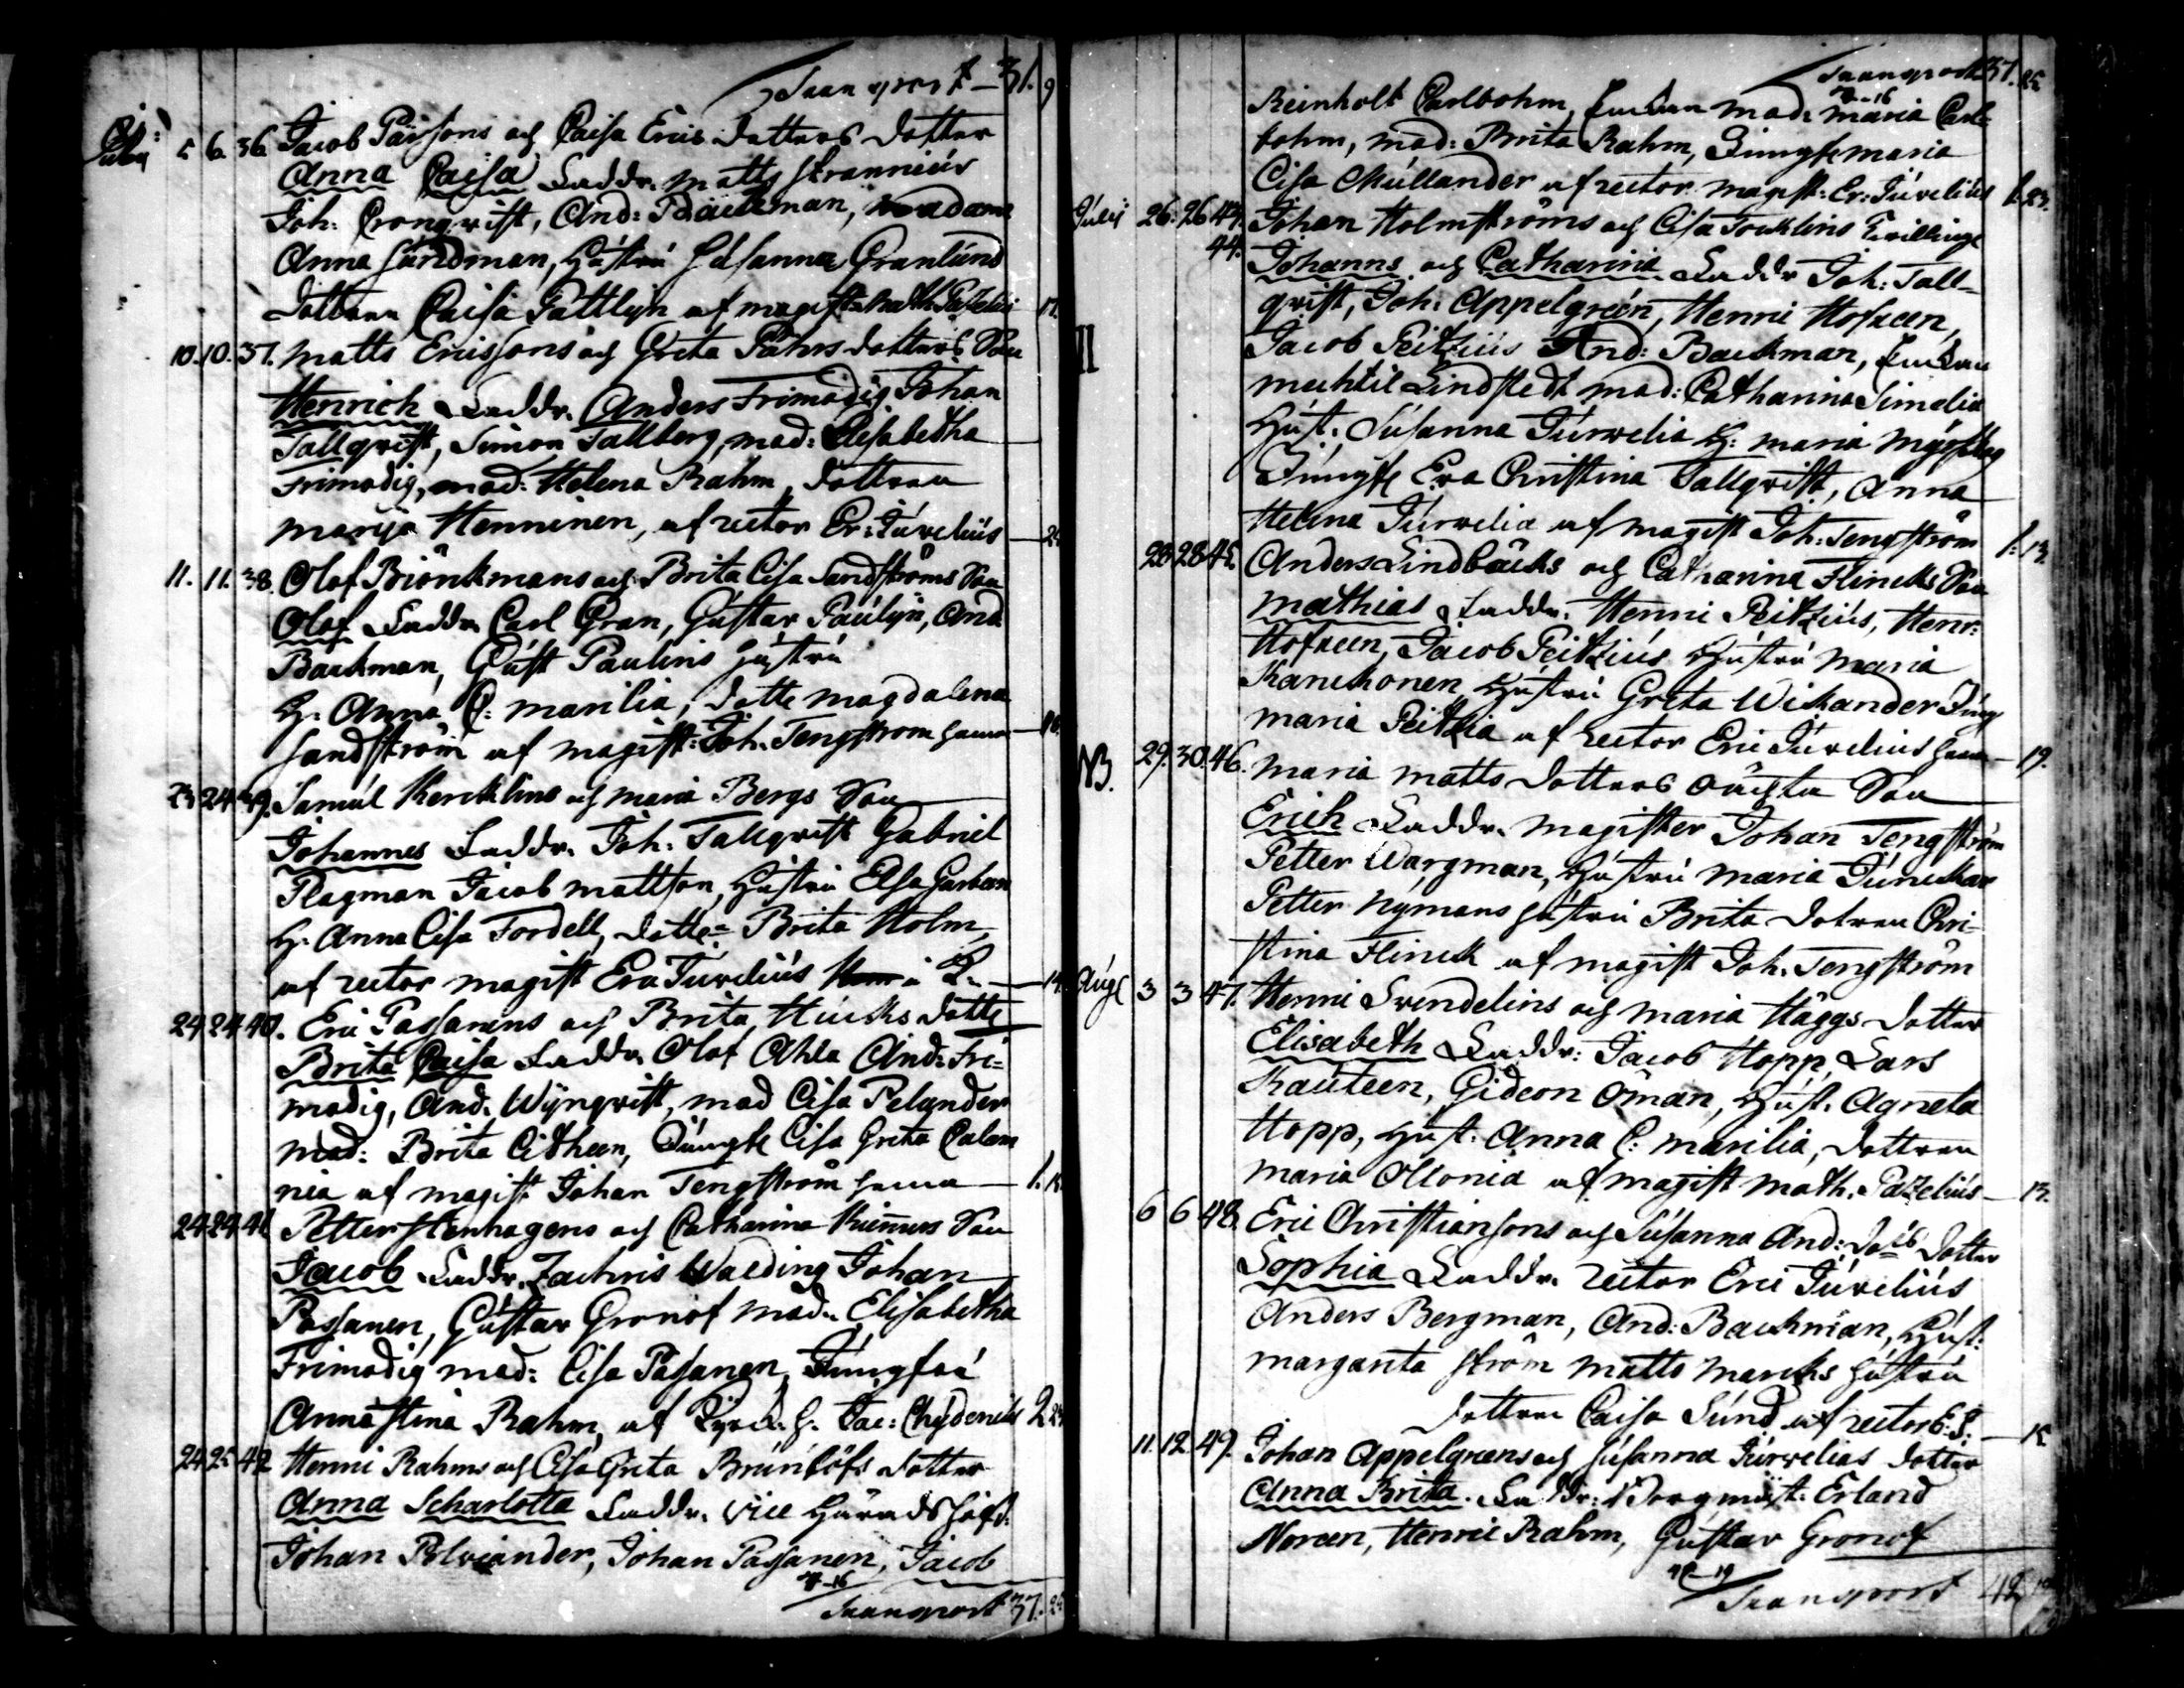 Transport — 31. 9
5 6. 36. Jacob Pärsons och Caisa Erics dotters dotter
Anna Caisa Faddr. Matts Krannius
Joh: Cronqvist, And: Backman, madame
Anna Sundman, Hustru Susanna Granlund
dottren Caisa Pattlijn af magist:
10. 10. 37. Matts Ericssons och Greta Påhrs dotters Son
Henrich Faddr. Anders Frimodig Johan
Tallqvist, Simon Tallberg, mad: Elisabetha
Frimodig, mad: Helena Rahm, dottren
Marja Henninen, af rector Er: Juvelius —
11. 11. 38. Olof Biörkmans och Brita Cisa Sandströms Son
Olof Faddr. Carl Gran, Gustav Paulijn, And
Backman, Gust Paulins Hustru
H: Anna C: Marilia, dotte Magdalena
Sandström af magist: Joh. Tengström
23 24 39. Samuel Kercklins och Maria Bergs Son
Johannes Faddr. Joh. Tallqvist Gabriel
Plagman Jacob Mattson, Hustru Elsa
H: Anna Cisa Fordell, dotte: Brita Holm,
af rector magist Juvelius
24 24 40. Eric Passanens och Brita Hucks dotte
Brita Caisa Faddr. Olof Ahla And: Fri-
modig, And. Wynqvist, mad Cisa Pelander
mad: Brita Citheen, Jungfr Cisa Greta Calam
nia af magist Johan Tengström
24 24 41. Petter Stenhagens och Catharina Son
Jacob Faddr. Zachris Walding Johan
Passanen, Gustav Gronof mad. Elisabetha
Frimodig mad: Cisa Passanen, Jungfru
Annastina Rahm, af H. Jac: Chydenius
24 25 42 Henric Rahms och Cisa Greta Brunlöfs dotter
Anna Scharlotta Faddr. Vice Häradshöfd.
Johan Polviander, Johan Passanen, Jacob
Transport 37.
Transport 37. 25
Reinholt Carlbohm, mad: Maria Carl-
bohm, mad: Brita Rahm, Jungfr Maria
Cisa Müllander af rector magist: Er: Juvelius 1. 23.
Julij 26. 26 43. Johan Holmströms och Cisa Tvillingar
44. Johannes och Catharina Faddr Joh: Tall-
qvist, Joh: Appelgreen, Henric Hofreen,
II Jacob Peitzius And: Backman,
Mechtil Lindstedt mad: Catharina Simelia
Hust. Susanna Jurvelia H: Maria
Jungfr Eva Christina Tallqvist, Anna
Helena Jurvelia af magist Joh: Tengström 1. 13.
28 28 45. Anders Lindbäcks och Catharina Flincks Son
Mathias Faddr. Henric Peitzius, Henr:
Hofreen, Jacob Peitzius Hustru Maria
Karckonen Hustru Greta Wikander Jung
Maria Peitzia af rector Eric Juvelius — 19.
NB. 29. 30. 46. Maria Matts dotters oächta Son
Erich Faddr. magister Johan Tengström
Petter Wargman, Hustru Maria
Petter Nymans Hustru Brita dotren Chri-
stina Flinck af magist Joh: Tengström
Aug: 3 3 47. Henric Svendelins och Maria Häggs dotter
Elisabeth Faddr: Jacob Hopp, Lars
Kauteen, Gideon Öman, Hust. Agneta
Hopp, Hust: Anna C: Marilia, dottren
Maria Ollonia af magist Math. Pazelius — 13.
6 6 48. Eric Christiansons och Susanna And: dotter
Sophia Faddr. rector Eric Juvelius
Anders Bergman, And: Backman, Hust:
Margareta Ström Matts Marcks Hustru
dottren Caisa Sund af rector E: J. —
11. 12. 49. Johan Appelgreens och Susanna Jurvelias dotter
Anna Brita. Faddr: Borgmäst: Erland
Noreen, Henric Rahm, Gustav Gronof
Transport 42